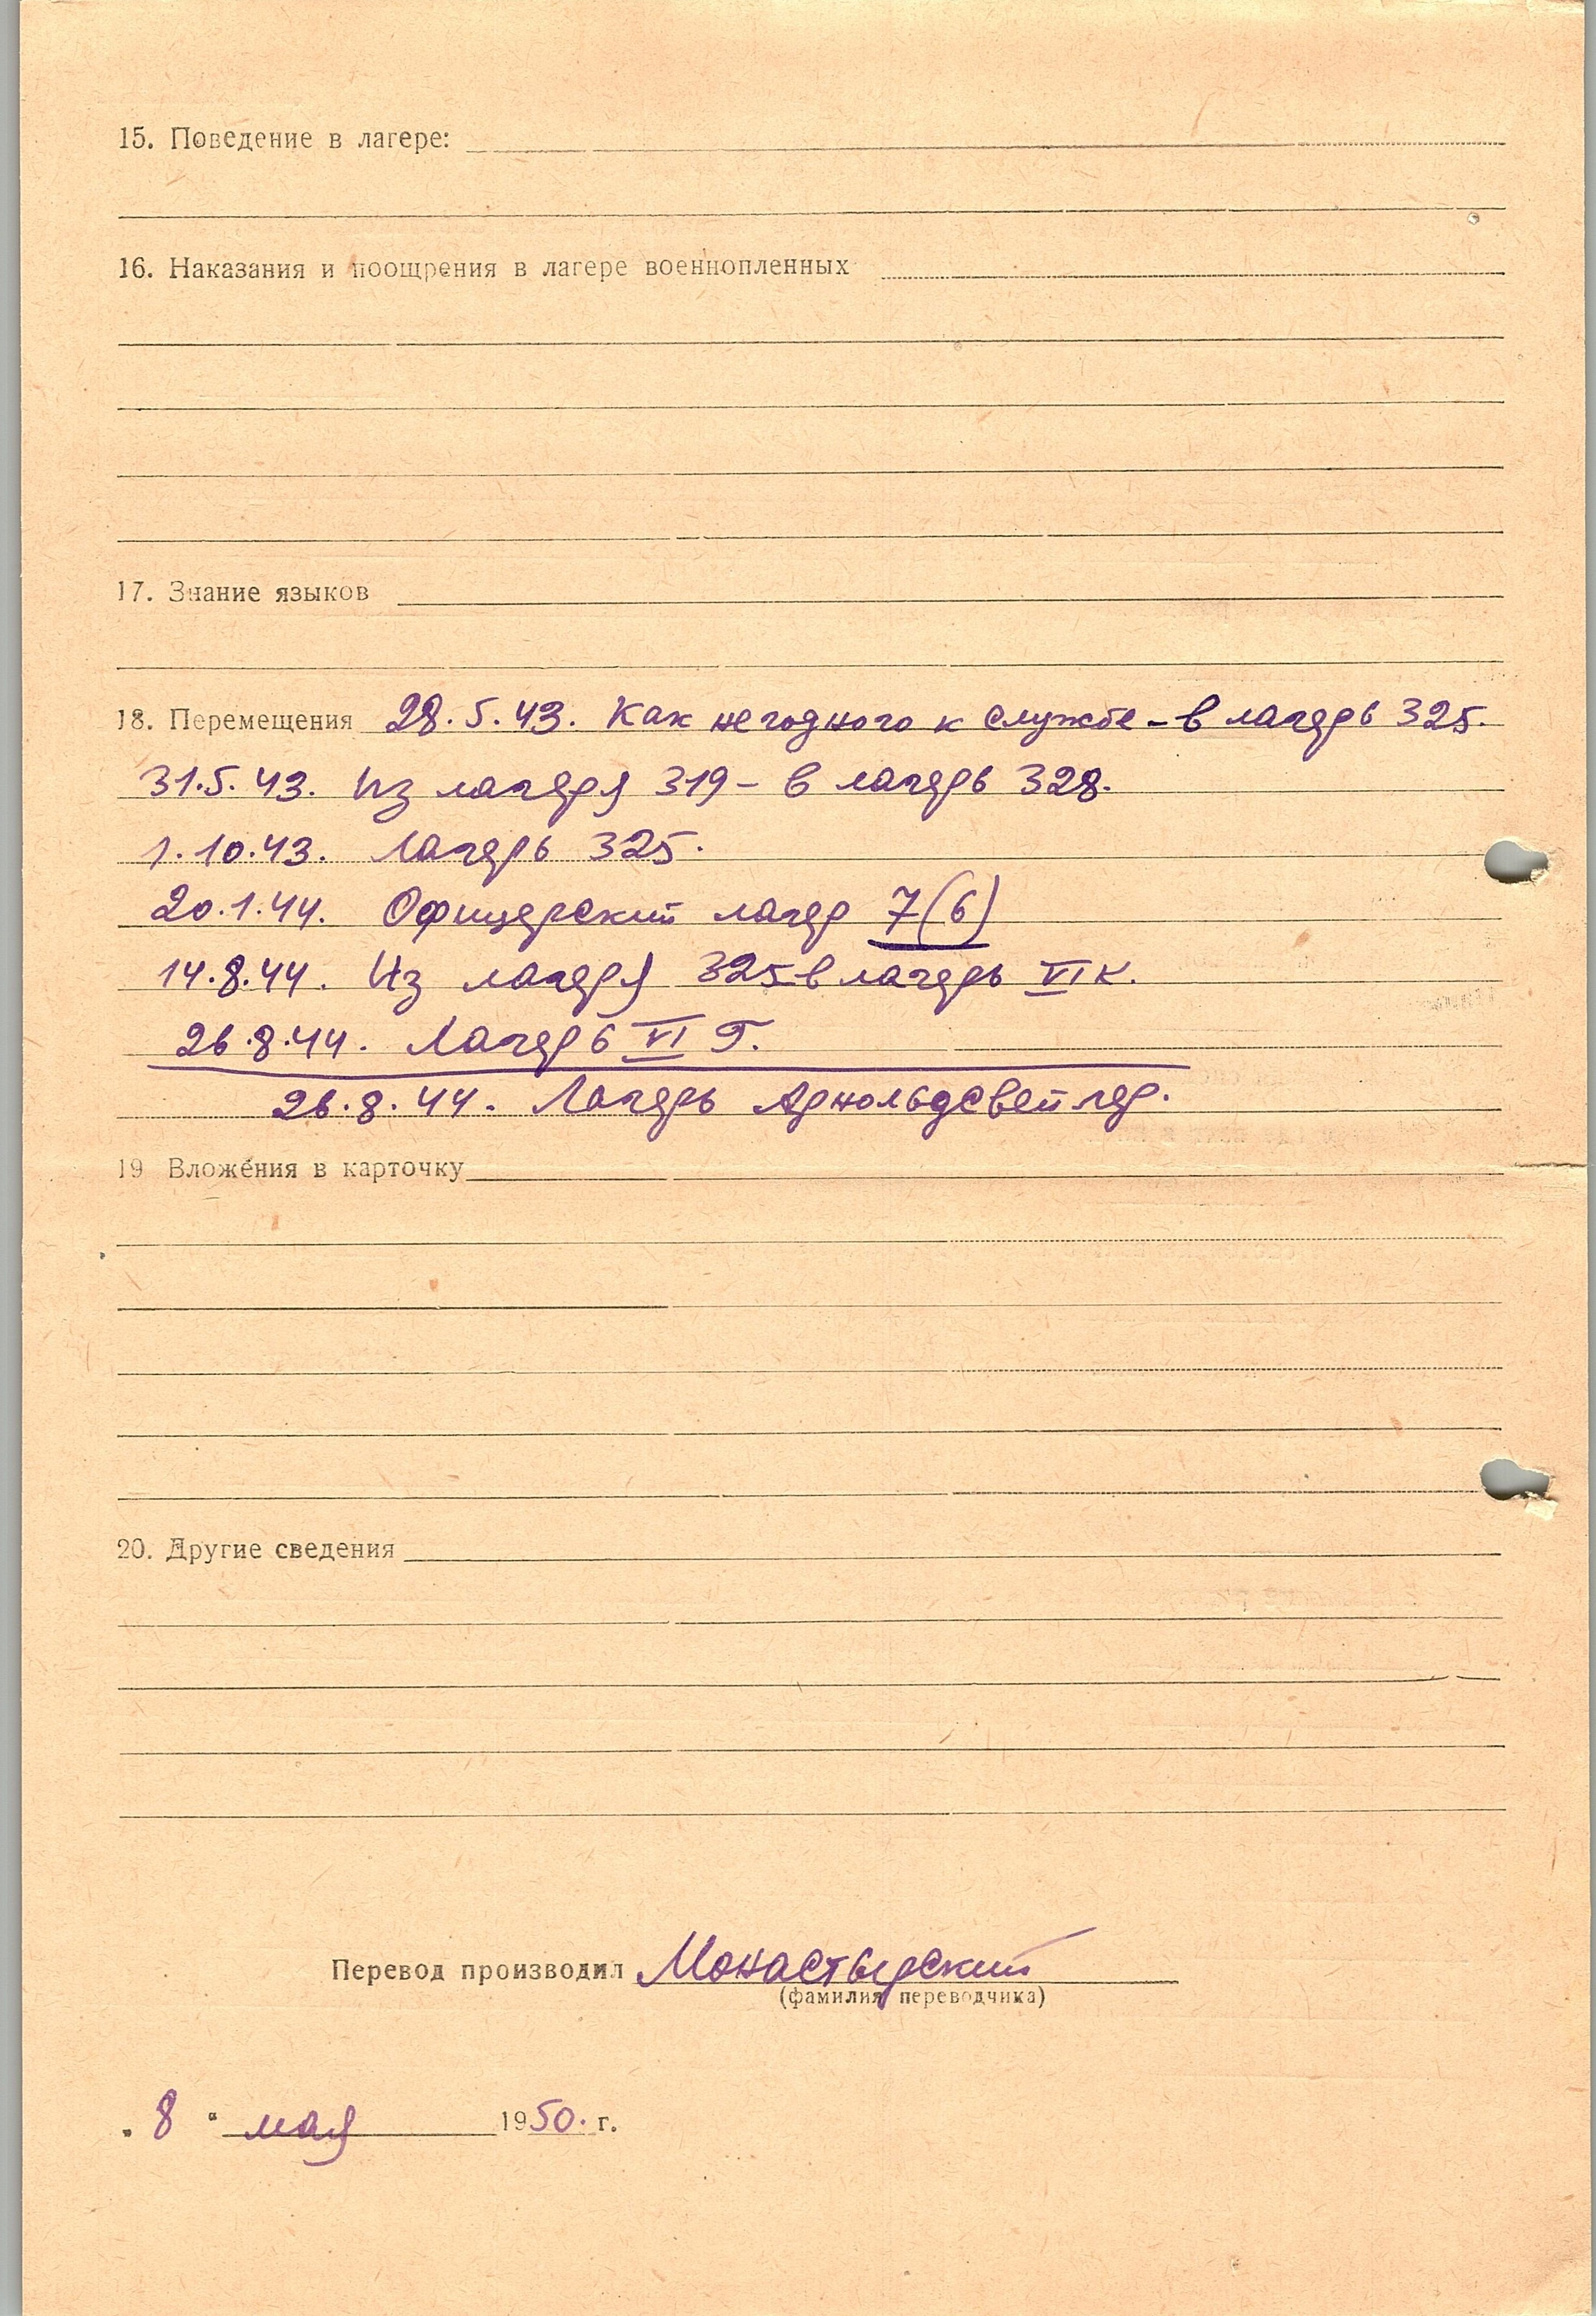 15. Поведение в лагере:
16. Наказания и поощрения в лагере военнопленных
17. Знание языков
18. Перемещения 28.5.43. Как негодного к службе - в лагерь 325.
31.5.43. Из лагеря 319 - в лагерь 328.
1.10.43. Лагерь 325.
20.1.44. Офицерский лагер 7(6)
14.8.44. Из лагеря 325 в лагерь VI К.
26.8.44. Лагерь VI Г.
26.8.44. Лагерь Арнольдсвейлер.
19 Вложения в карточку
20. Другие сведения
Перевод производил Монастырский
(фамилия переводчика)
„ 8 “ мая 1950. г.